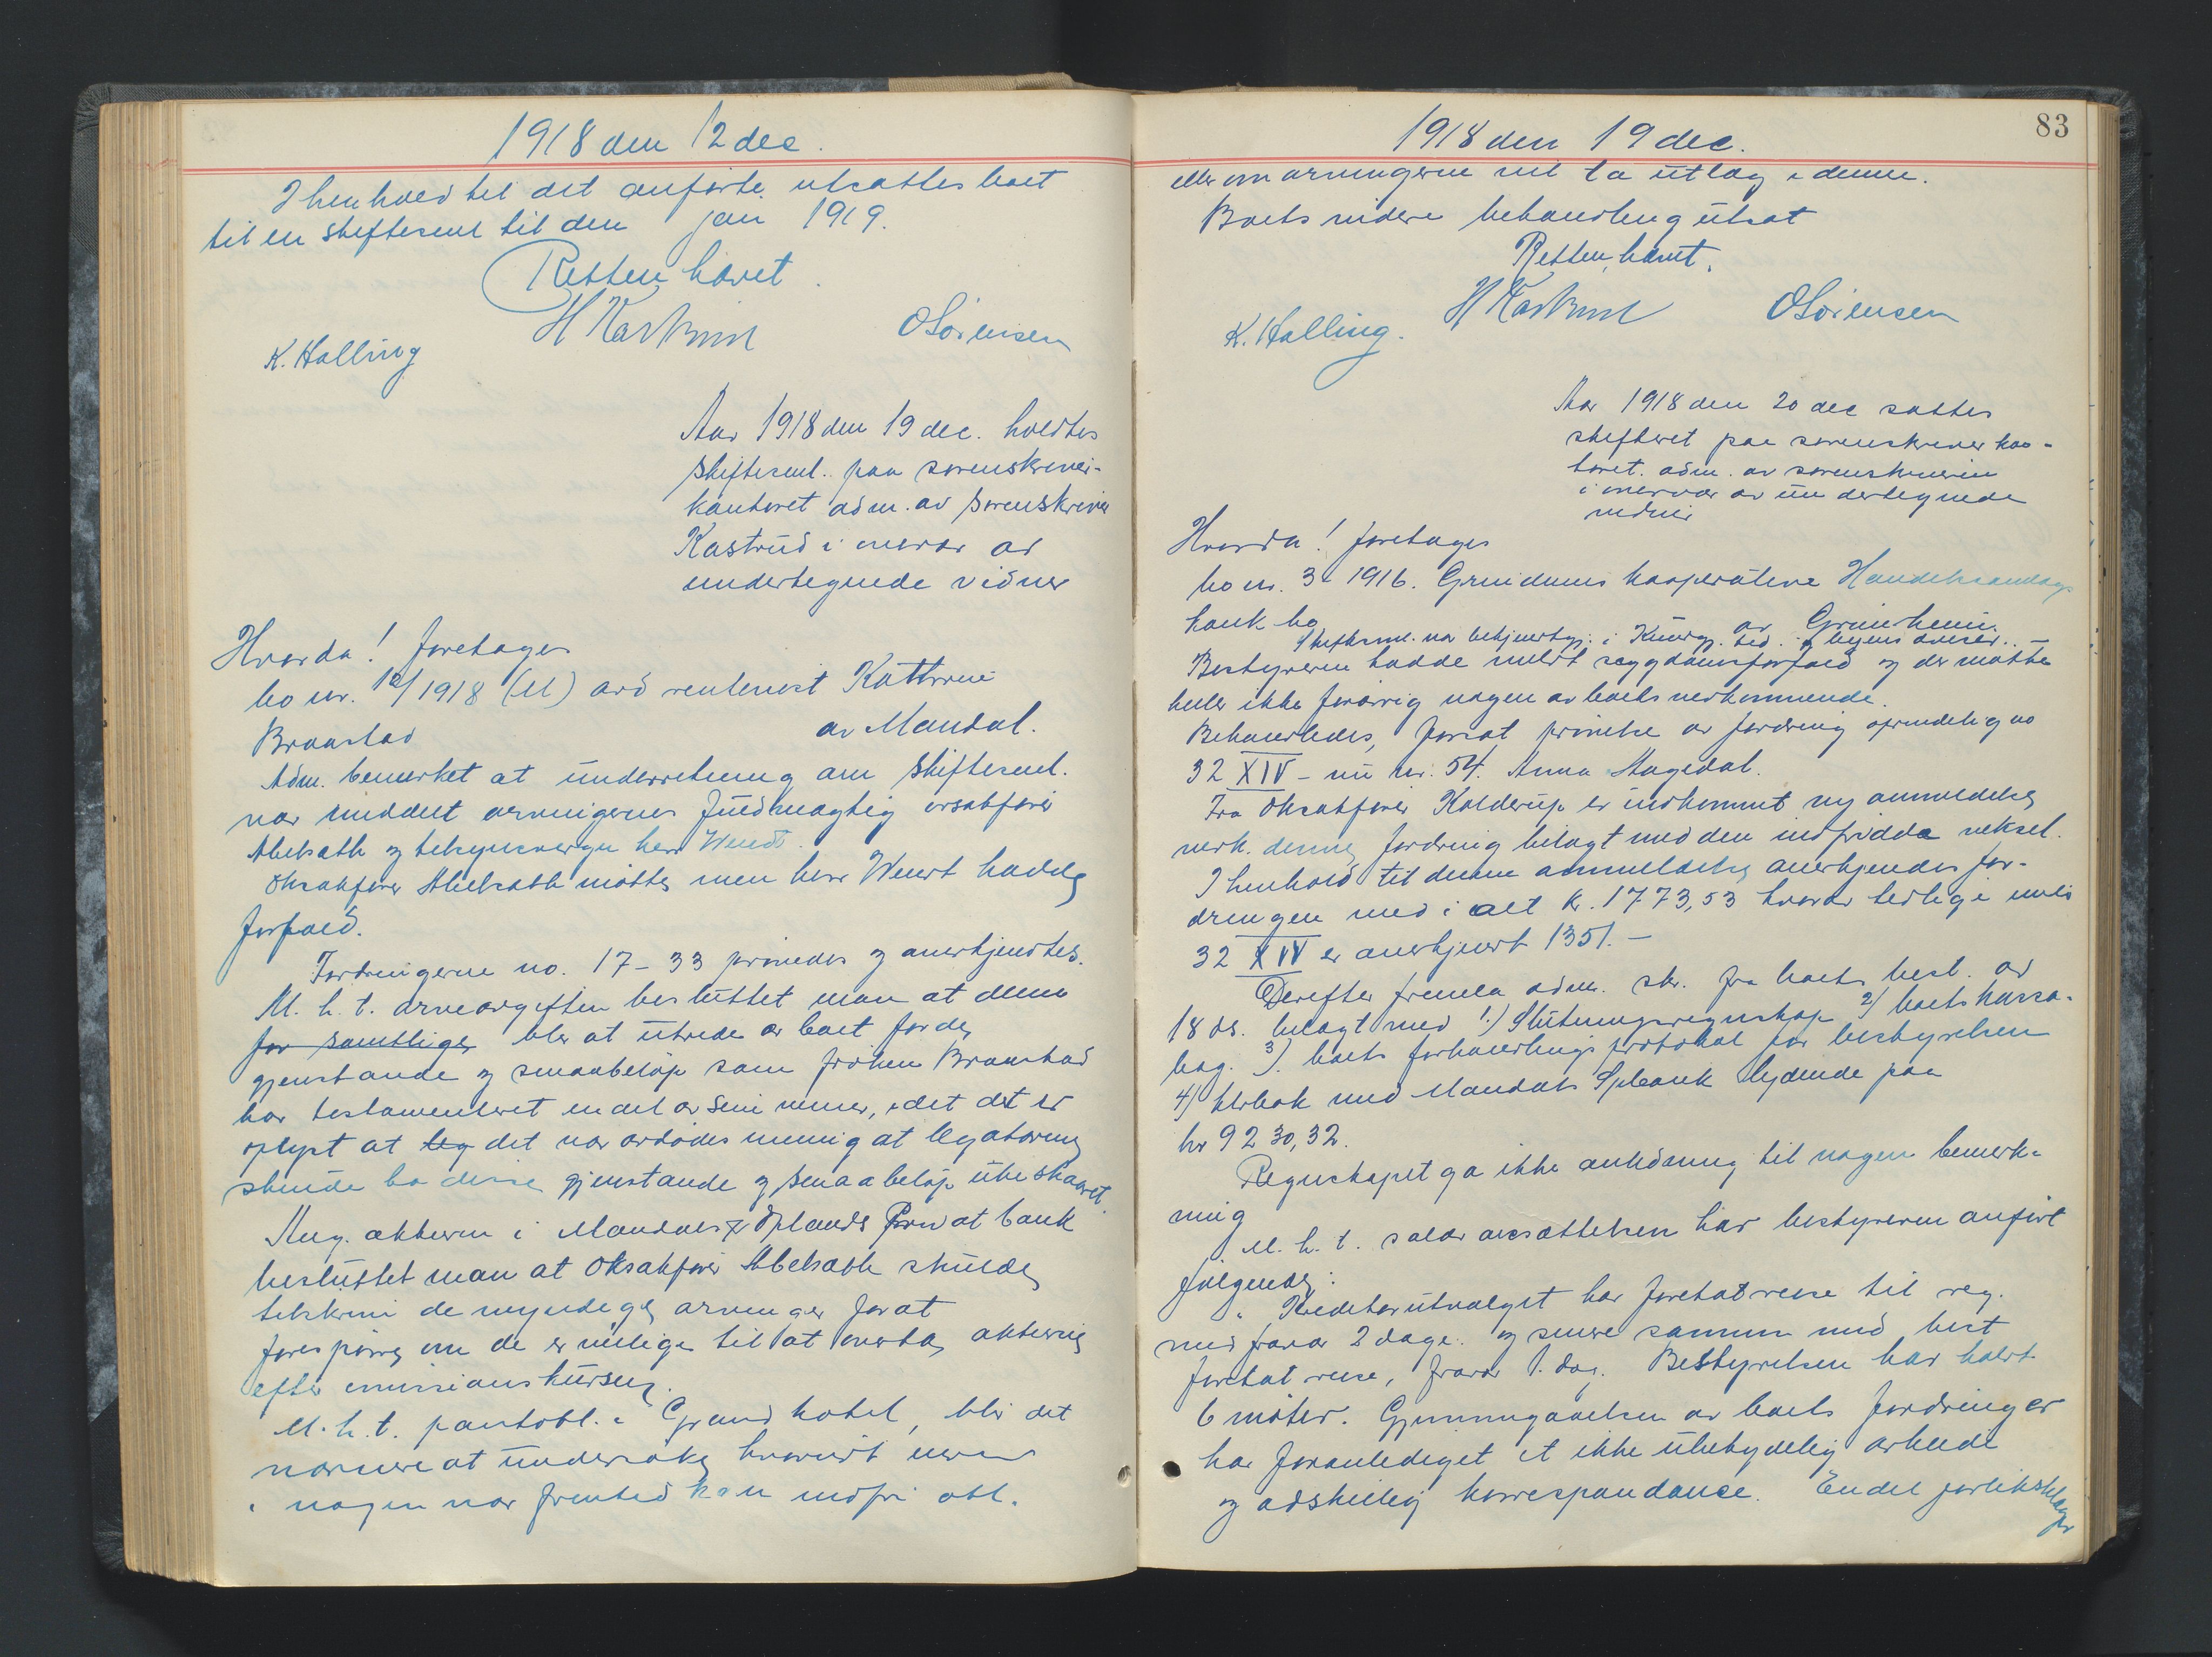 1918 den 12 dec.
I henhold til det anførte utsattes boet
til en skiftesaml til den jan 1919.
Retten hævet.
H Kastrud
OSørensen
K. Halling
Aar 1918 den 19 dec. holdtes
skiftesaml. paa sorenskriver-
kontoret adm. av sorenskriver
Kastrud i overvær av
undertegnede vidner
Hvorda! foretages
bo nr. 12/1918 (U) avd rentenist Kathrine
Braastad av Mandal.
Adm. bemerket at underretning om skiftesaml.
var meddelt arvingernes fuldmægtig orsakfører
Abelsæth og tilsynsverge herr Wendt.
Orsakfører Abelsæth møtte men herr Wendt hadde
forfald.
Fordringerne no. 17-33 prøvedes og anerkjendtes.
M. h. t. arveavgiften besluttet man at denne
for samtlige blir at utrede av boet for de
gjenstande og smaabeløp som frøken Braastad
har testamenteret en del av sine venner, idet det er
oplyst at leg det var avdødes mening at legatarene
skulde ha disse gjenstande og smaabeløp ubeskaaret.
Ang. aktierne i Mandals & Oplands Privatbank
besluttet man at Orsakfører Abelsæth skulde
tilskrive de myndige arvinger for at
forespørre om de er villige til at overta aktierne
efter emissionskursen.
M. h. t. pantobl. i Grand hotel, blir det
nærmere at undersøke hvorvidt
i nogen nær fremtid kan indfri obl.
83
1918 den 19 dec.
eller om arvingerne vil ta utlæg i denne.
Boets videre behandling utsat
Retten hævet.
H Kastrud
OSørensen
K. Halling.
Aar 1918 den 20 dec sattes
skifteret paa sorenskriver kon-
toret. adm. av sorenskriveren
i overvær av undertegnede
vidner
Hvorda! foretages
bo nr. 3 1916. Grindheims kooperative Handelssamlags
konk bo av Grindheim.
Skiftesaml. var bekjentgj. i Kundgj. tid. og byens aviser.
Bestyreren hadde meldt sygdomsforfald og der møtte
heller ikke forøvrig nogen av boets vedkommende.
Behandledes, forsat prøvelse av fordring oprindelig no
32 XIV - nu nr. 54. Anna Hagedal.
Fra Orsakfører Kolderup er indkommet ny anmeldelse
vedk. denne fordring belagt med den indfridde veksel.
I henhold til denne anmeldelse anerkjendes for-
dringen med i alt kr. 1773,53 hvorav tidlige under
32 XIV er anerkjendt 1351.-
Derefter fremla adm. skr. fra boets best. av
18 ds. belagt med 1.) Slutningsregnskap 2) boets kassa-
bog. 3). boets forhandlingsprotokol for bestyrelsen
4) bkrbok med Mandals Spbank lydende paa
kr 9230,32.
Regnskapet ga ikke anledning til nogen bemerk-
ning
M. h. t. salær ansættelsen har bestyreren anført
følgende:
"Kreditorutvalget har foretat reise til reg.
med fravær 2 dage. og senere sammen med best
foretat reise, fravær 1. dag. Bestyrelsen har holdt
6 møter. Gjennemgaaelsen av boets fordringer
har foranlediget et ikke ubetydelig arbeide
og adskillig korrespondance. Endel forliksklager